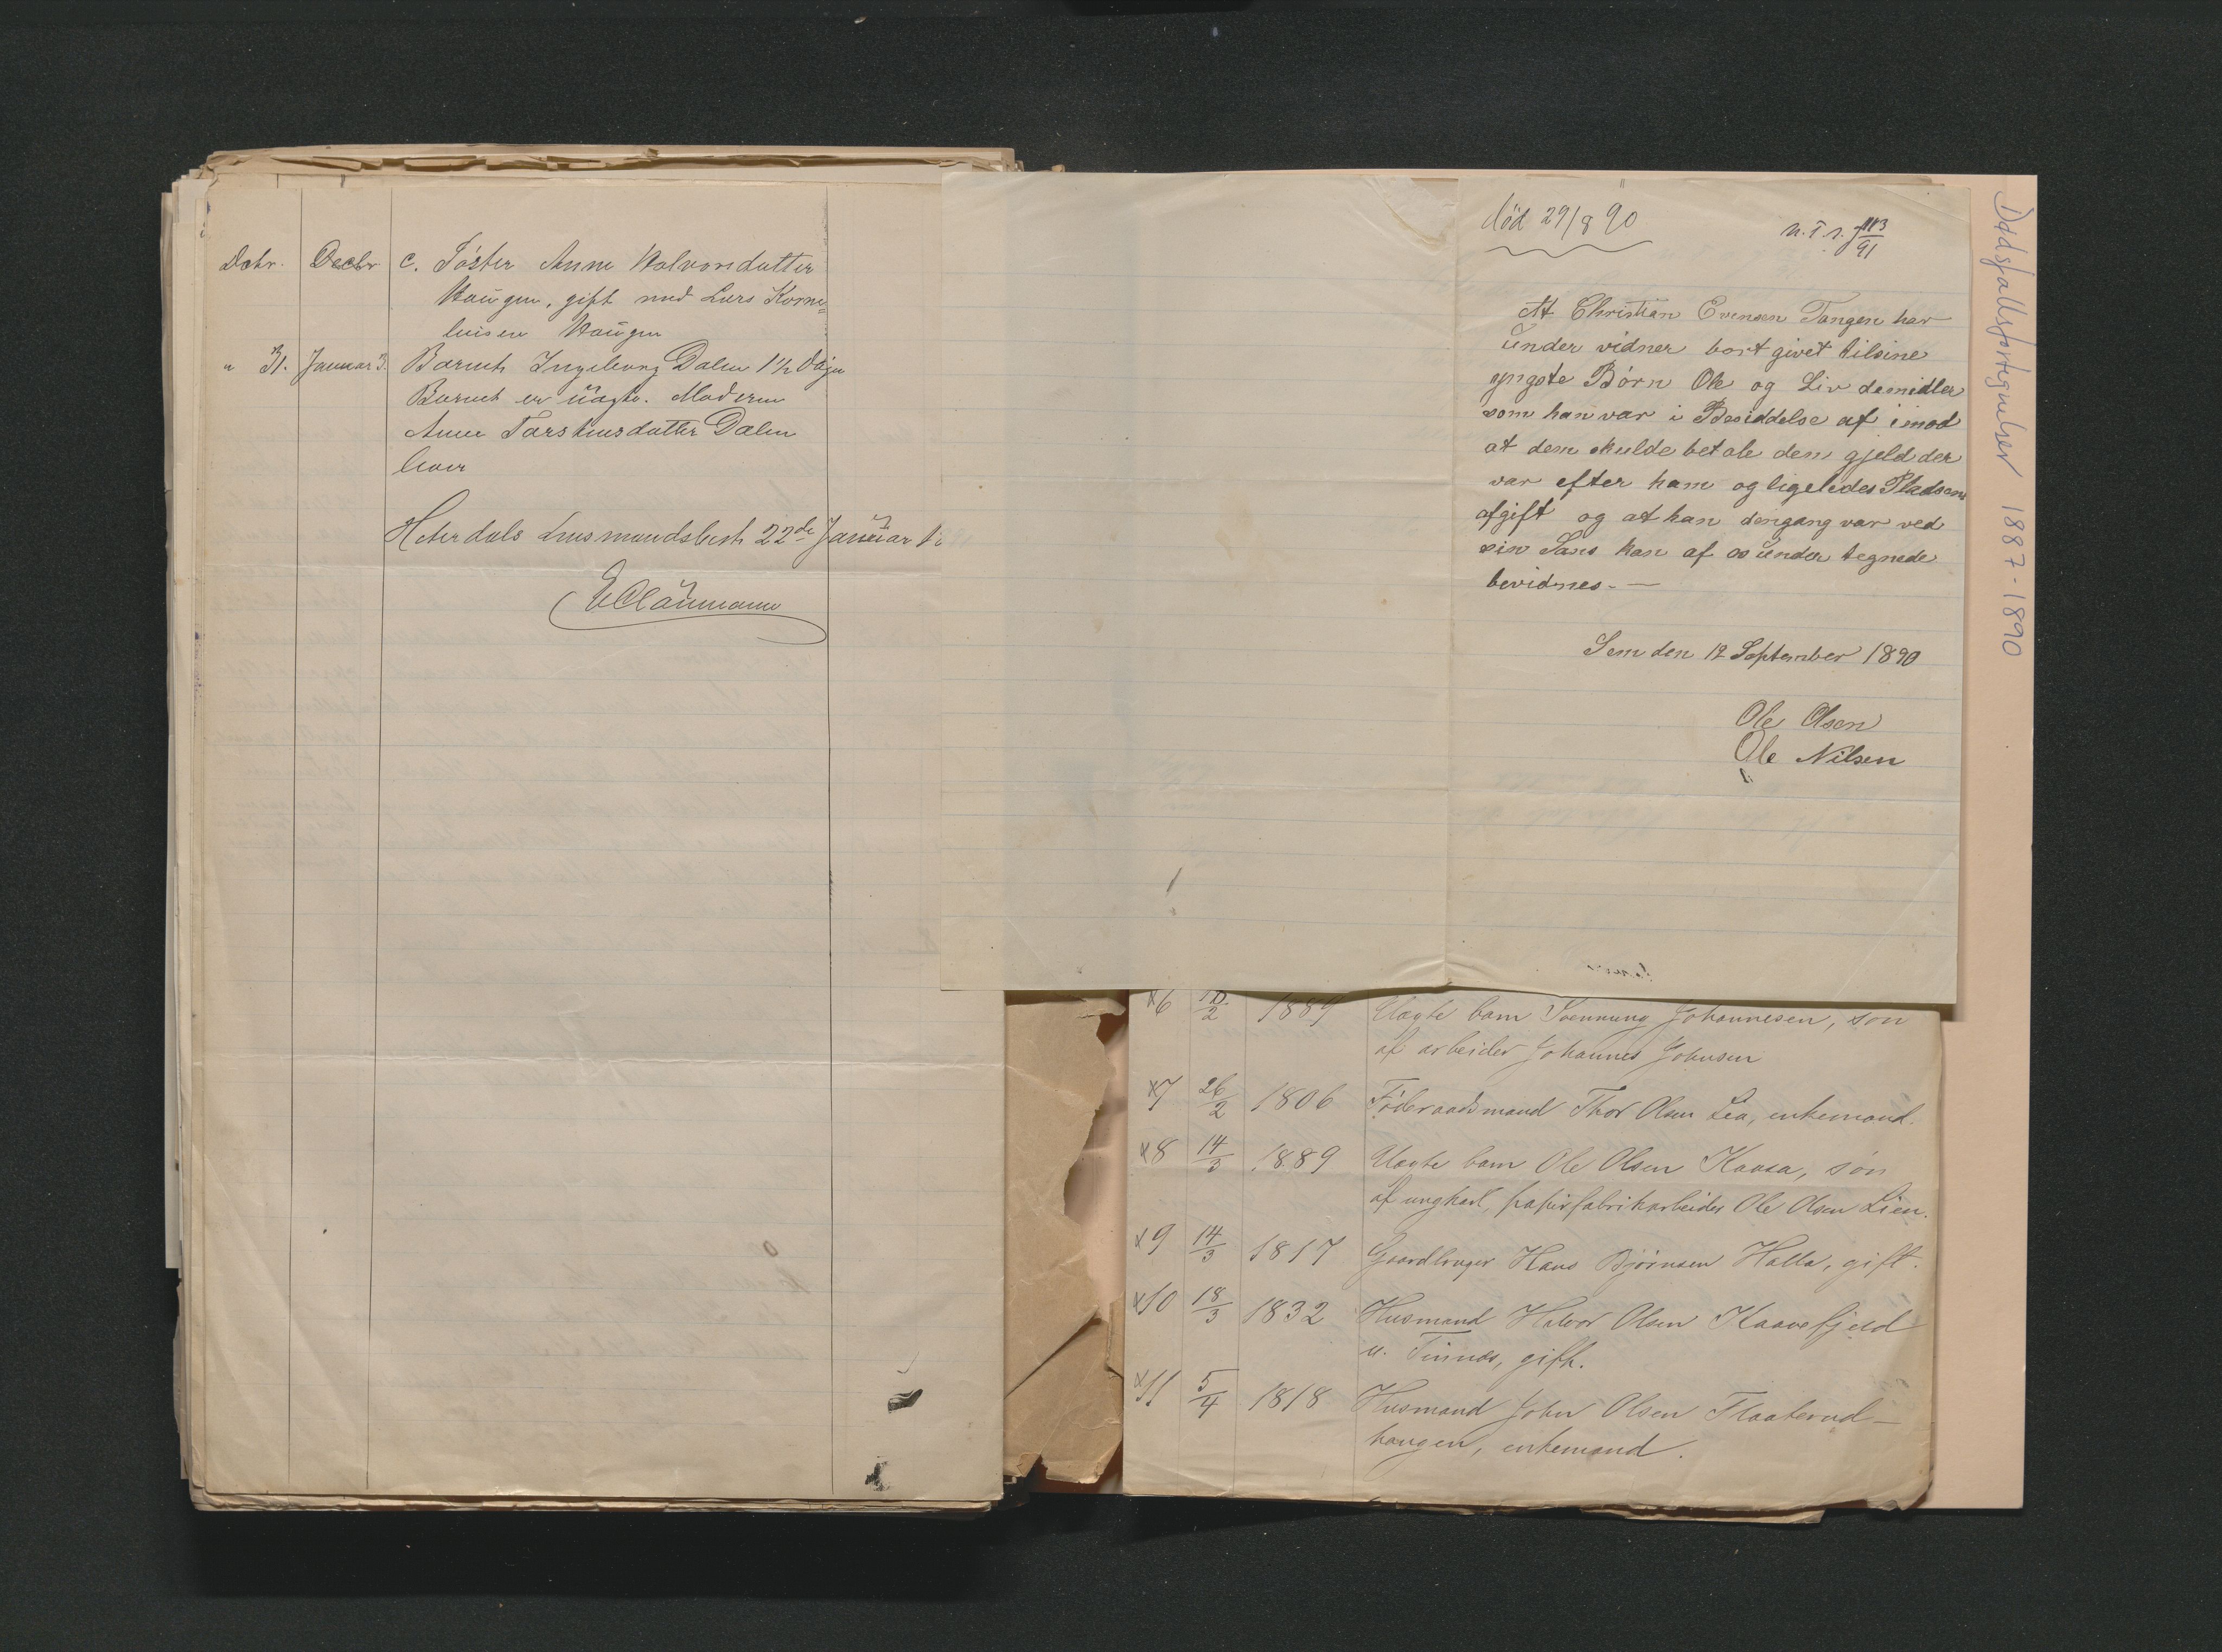 Dcbr. Decbr c. Søster Anne Halvorsdatter
Haugen, gift med Lars Korne-
liusen Haugen
" 31. Januar 3. Barnet Ingeborg Dalen 1½ Dage
Barnet er uægte. Moderen
Anne Torsteinsdatter Dalen
lever
Hiterdals Lensmandsbest. 22de Januar
død 29/8 90
At Christian Evensen Tangen har
under vidner bort givet tilsine
yngste Børn Ole og Liv demidler
som han var i Besiddelse af imod
at dem skulde betale den gjeld der
var efter ham og ligeledes Pladsens
afgift og at han dengang var ved
sin Sans kan af os under tegnede
bevidnes. —
Sem den 12 September 1890
Ole Olsen
Ole Nilsen
Dødsfallsfortegnelser 1887-1890
x6 10/2 1889 Uægte barn Svennung Johannesen, søn
af arbeider Johannes Johnsen
x7 26/2 1806 Føderaadsmand Thor Olsen Lea, enkemand.
x8 14/3 1889 Uægte barn Ole Olsen Kaasa, søn
af ungkarl, papirfabrikarbeider Ole Olsen Lien.
x9 14/3 1817 Gaardbruger Hans Bjørnsen Halla, gift.
x10 18/3 1832 Husmand Halvor Olsen Kaavefjeld
u. Tinnæs, gift.
x11 5/4 1818 Husmand John Olsen Flaaterud-
haugen, enkemand.